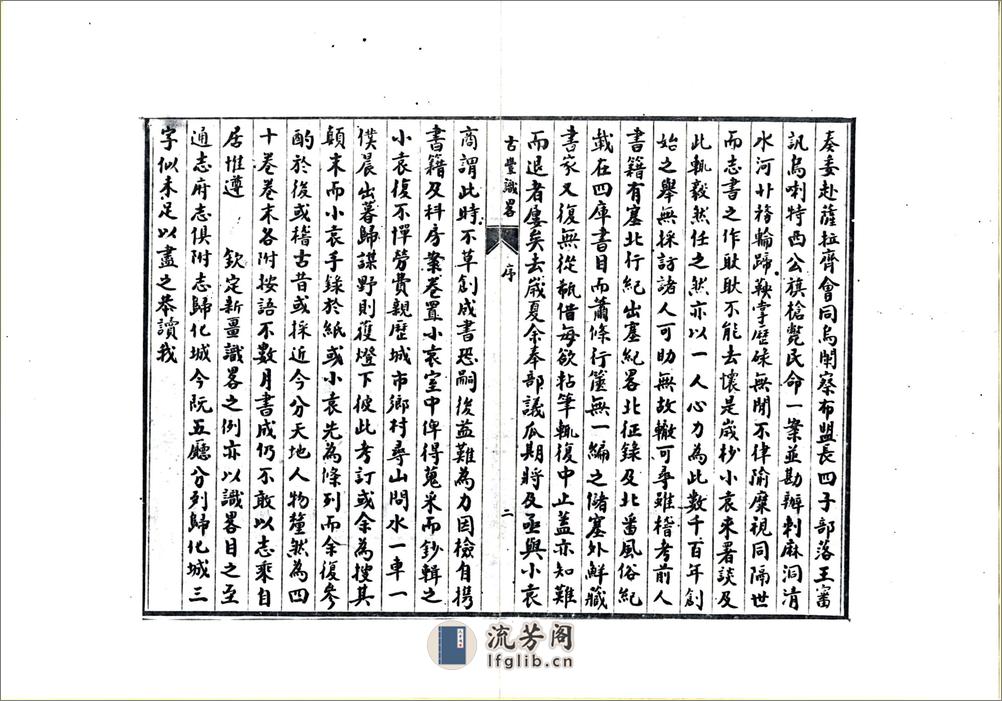 奏委赴薩拉齊會同烏闌察布盟長四子部落王審
訊烏喇特西公旗槍斃民命一案並勘辦剌麻洞清
水河廾務輪蹄鞅掌歴碌無閒不律隃糜視同隔世
而志書之作耿耿不能去懷是嵗杪小袁來署談及
此輒毅然任之然亦以一人心力為此數千百年創
始之舉無採訪諸人可助無故轍可尋雖稽考前人
書籍有塞北行紀出塞紀畧北征錄及北番風俗紀
載在四庫書目而蕭條行篋無一編之儲塞外鮮藏
書家又復無從瓻借每欲粘筆輒復中止蓋亦知難
而退者屢矣去嵗夏余奉部議瓜期將及亟與小袁
古豐識畧 序 二
商謂此時不草創成書恐嗣後益難為力因檢自携
書籍及科房案卷置小袁室中俾得蒐采而鈔輯之
小袁復不憚勞費親歷城市鄉村尋山問水一車一
僕晨出暮歸謀野則獲燈下彼此考訂或余為搜其
顛末而小袁手錄於紙或小袁先為條列而余復參
酌於後或稽古昔或採近今分天地人物釐然為四
十卷卷末各附按語不數月書成仍不敢以志乘自
居惟遵 欽定新疆識畧之例亦以識畧目之至
通志府志俱附志歸化城今阮五廳分列歸化城三
字似未足以盡之恭讀我
流芳阁
lfglib.cn